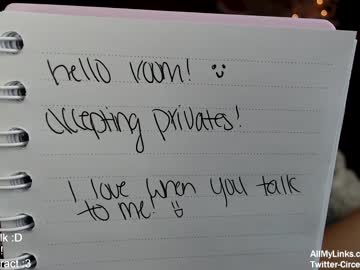 hello room! :)
accepting privates!
I love when you talk
to me! :)
lk :D
!
ract :3
AllMyLinks.c
Twitter-Circe